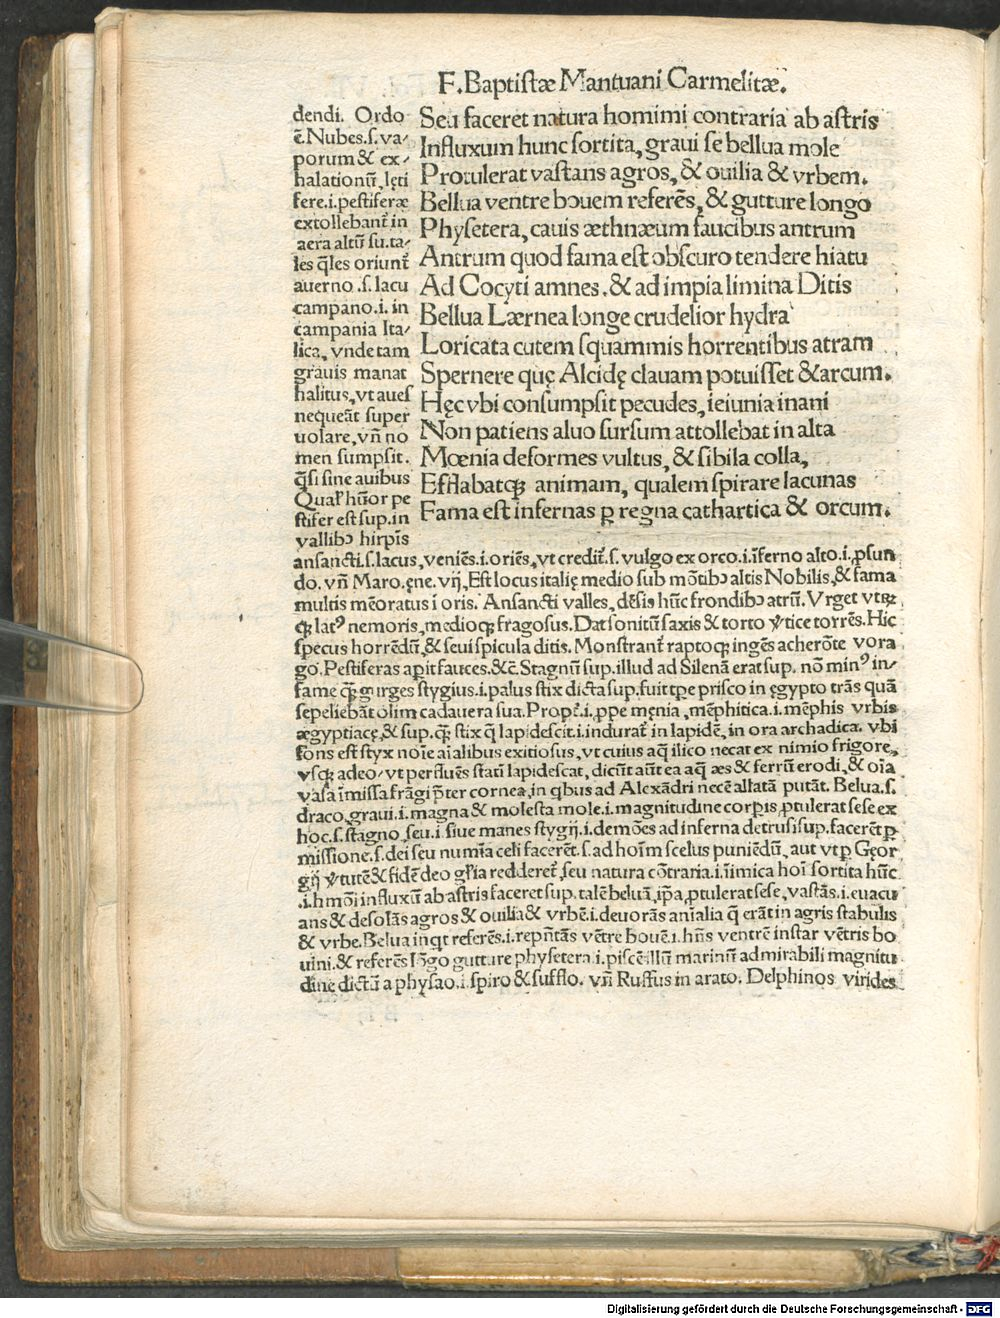 F. Baptistæ Mantuani Carmelitæ.
dendi. Ordo
ē. Nubes. s. va⸗
porum & ex⸗
halationū, lęti
fere. i. pestiferæ
extollebant̄ in
aera altū su. ta⸗
les q̄les oriunt̄
auerno . s. lacu
campano. i. in
campania Ita⸗
lica, vnde tam
grauis manat
halitus, vt aues
nequeāt super
uolare, vn̄ no
men sumpsit.
q̄si sine auibus
stifer est sup. in
vallibꝰ hirpis
Seu faceret natura homimi contraria ab astris
Influxum hunc sortita, graui se bellua mole
Protulerat vastans agros, & ouilia & vrbem.
Bellua ventre bouem referēs, & gutture longo
Physetera, cauis æthnæum faucibus antrum
Antrum quod fama est obscuro tendere hiatu
Ad Cocyti amnes, & ad impia limina Ditis
Bellua Lærnea longe crudelior hydra
Loricata cutem squammis horrentibus atram
Spernere quę Alcidę clauam potuisset & arcum.
Hęc vbi consumpsit pecudes, ieiunia inani
Non patiens aluo sursum attollebat in alta
Mœnia deformes vultus, & sibila colla,
Efflabatqꝫ animam, qualem spirare lacunas
Fama est infernas ꝑ regna cathartica & orcum.
ansancti. s. lacus, veniēs. i. oriēs, vt credit̄. s. vulgo ex orco. i. īferno alto. i. ꝓfun
do. vn̄ Maro. ęne. vij, Est locus italię medio sub mōtibꝰ altis Nobilis, & fama
multis mēoratus ī oris. Ansancti valles, dēsis hūc frondibꝰ atrū. Vrget vtrꝫ
qꝫ latꝰ nemoris, medioqꝫ fragosus. Dat sonitū saxis & torto v̄tice torrēs. Hic
specus horrēdū, & seui spicula ditis. Monstrant̄ raptoqꝫ ingēs acherōte vora
go. Pestiferas aꝑit fauces. &c̄. Stagnū sup. illud ad Silenā erat sup. nō minꝰ in⸗
fame qꝫ gurges stygius. i. palus stix dicta sup. fuit tꝑe prisco in ęgypto trās quā
sepeliebāt olim cadauera sua. Propt̄. i. ꝓpe męnia , mēphitica. i. mēphis vrbis
ægyptiacę, & sup. qꝫ stix q̄ lapidescit. i. indurat̄ in lapidē, in ora archadica. vbi
fons est styx noīe aīalibus exitiosus, vt cuius aq̄ ilico necat ex nimio frigore,
vsqꝫ adeo, vt perfluēs statī lapidescat, dicūt aūt ea aq̄ æs & ferrū erodi, & oīa
vasa īmissa frāgi p̄ter cornea, in qbus ad Alexādri necē allatā putāt. Belua. s.
draco, graui. i. magna & molesta mole. i. magnitudine corꝑis, ꝓtulerat sese ex
hoc. s. stagno, seu. i. siue manes stygij. i. demōes ad inferna detrusi sup. facerēt ꝑ
missione. s. dei seu numīa celi facerēt. s. ad hoīm scelus puniēdū, aut vt ꝑ Geor
gij v̄tutē & fidē deo gl̄ia redderet̄, seu natura cōtraria. i. īimica hoī sortita hūc
.i. hmōi influxū ab astris faceret sup. talē beluā, ip̄a, ꝓtulerat sese, vastās. i. euacu
ans & desolās agros & ouilia & vrbē. i. deuorās anīalia q̄ erāt in agris stabulis
& vrbe. Belua inqt referēs. i. rep̄ntās vētre bouē. i. hn̄s ventrē instar vētris bo
uini. & referēs lōgo gutture physetera. i. piscē illū marinū admirabili magnitu
dine dictū a physao. i. spiro & sufflo. vn̄ Ruffus in arato. Delphinos virides
Digitalisierung gefördert durch die Deutsche Forschungsgemeinschaft - DFG